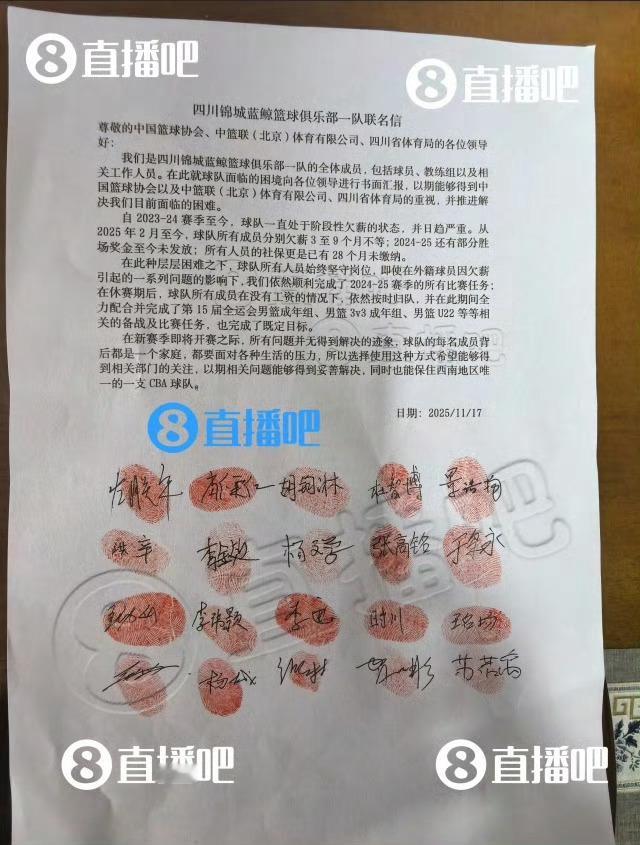 8直播吧
8直播吧
四川锦城蓝鲸篮球俱乐部一队联名信
尊敬的中国篮球协会、中篮联（北京）体育有限公司、四川省体育局的各位领导
好：
我们是四川锦城蓝鲸篮球俱乐部一队的全体成员，包括球员、教练组以及相
关工作人员。在此就球队面临的困境向各位领导进行书面汇报，以期能够得到中
国篮球协会以及中篮联（北京）体育有限公司、四川省体育局的重视，并推进解
决我们目前面临的困难。
自 2023-24 赛季至今，球队一直处于阶段性欠薪的状态，并日趋严重。从
2025 年 2 月至今，球队所有成员分别欠薪 3 至 9 个月不等；2024-25 还有部分胜
场奖金至今未发放；所有人员的社保更是已有 28 个月未缴纳。
在此种层层困难之下，球队所有人员始终坚守岗位，即使在外籍球员因欠薪
引起的一系列问题的影响下，我们依然顺利完成了 2024-25 赛季的所有比赛任务；
在休赛期后，球队所有成员在没有工资的情况下，依然按时归队，并在此期间全
力配合并完成了第 15 届全运会男篮成年组、男篮 3v3 成年组、男篮 U22 等等相
关的备战及比赛任务，也完成了既定目标。
在新赛季即将开赛之际，所有问题并无得到解决的迹象，球队的每名成员背
后都是一个家庭，都要面对各种生活的压力，所以选择使用这种方式希望能够得
到相关部门的关注，以期相关问题能够得到妥善解决，同时也能保住西南地区唯
一的一支 CBA 球队。
8直播吧
日期：2025/11/17
杜智博 景浩阳
杨文学 张高铭 于梁永
李瑞颖 李迅 时川
8直播吧
8直播吧
8直播吧